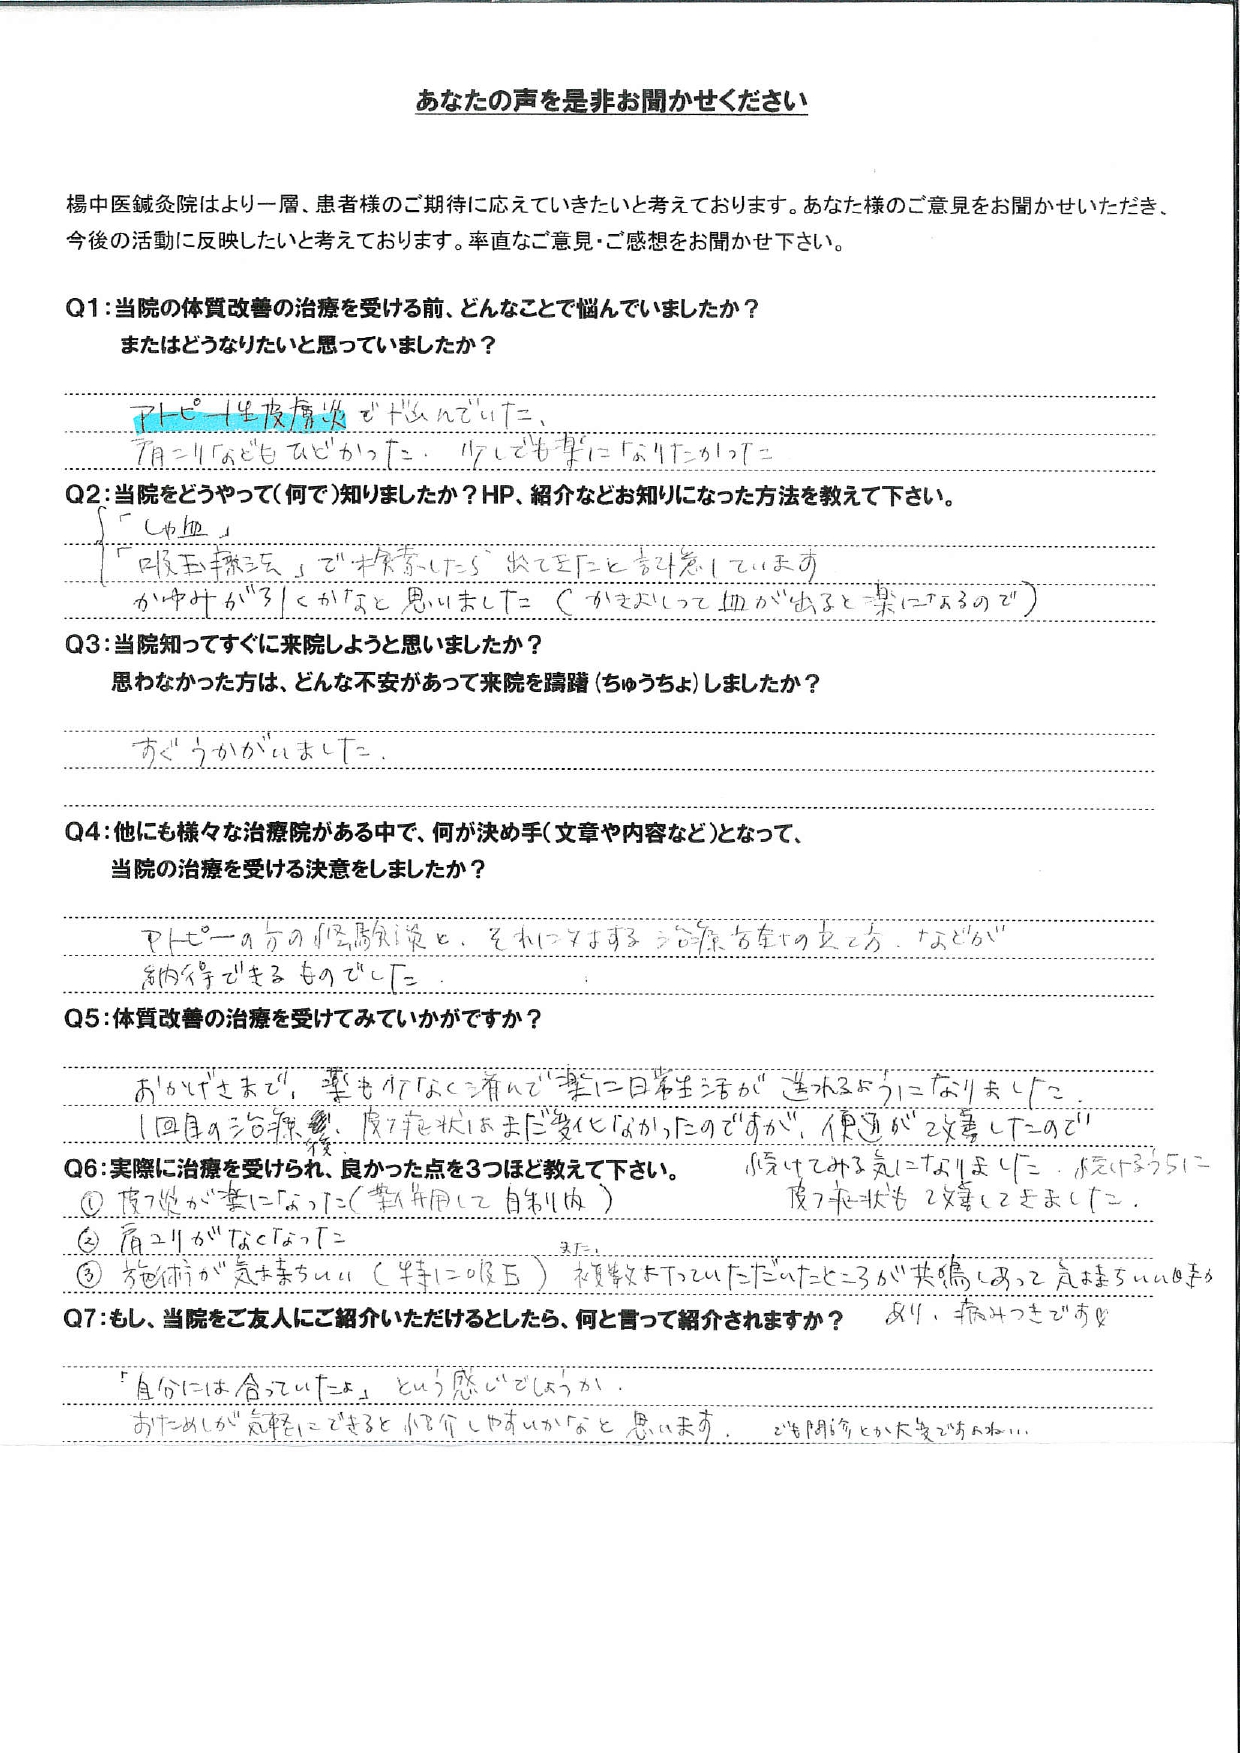 あなたの声を是非お聞かせください
楊中医鍼灸院はより一層、患者様のご期待に応えていきたいと考えております。あなた様のご意見をお聞かせいただき、
今後の活動に反映したいと考えております。率直なご意見・ご感想をお聞かせ下さい。
Q1：当院の体質改善の治療を受ける前、どんなことで悩んでいましたか？
またはどうなりたいと思っていましたか？
アトピー性皮膚炎で悩んでいた、
肩こりなどもひどかった. 少しでも楽になりたかった
Q2：当院をどうやって（何で）知りましたか？HP、紹介などお知りになった方法を教えて下さい。
「しゃ血」
「吸玉療法」で検索したら 出てきたと記憶しています
かゆみが引くかなと思いました（かきむしって血が出ると楽になるので）
Q3：当院知ってすぐに来院しようと思いましたか？
思わなかった方は、どんな不安があって来院を躊躇（ちゅうちょ）しましたか？
すぐうかがいました.
Q4：他にも様々な治療院がある中で、何が決め手（文章や内容など）となって、
当院の治療を受ける決意をしましたか？
アトピーの方の経験談と、それに対する治療方針の立て方、などが
納得できるものでした.
Q5：体質改善の治療を受けてみていかがですか？
おかげさまで、薬も少なく済んで楽に日常生活が送れるようになりました.
1回目の治療後、皮フ症状はまだ変化なかったのですが、便通が改善したので
続けてみる気になりました. 続けるうちに
皮フ症状も改善してきました.
Q6：実際に治療を受けられ、良かった点を3つほど教えて下さい。
① 皮フ炎が楽になった（薬併用して自制内）
② 肩コリがなくなった
③ 施術が気持ちいい（特に吸玉）また、複数打っていただいたところが共鳴しあって気持ちいい時が
あり、病みつきです♡
Q7：もし、当院をご友人にご紹介いただけるとしたら、何と言って紹介されますか？
「自分には合っていたよ」という感じでしょうか.
おためしが気軽にできると紹介しやすいかなと思います. でも問診とか大変ですよね…